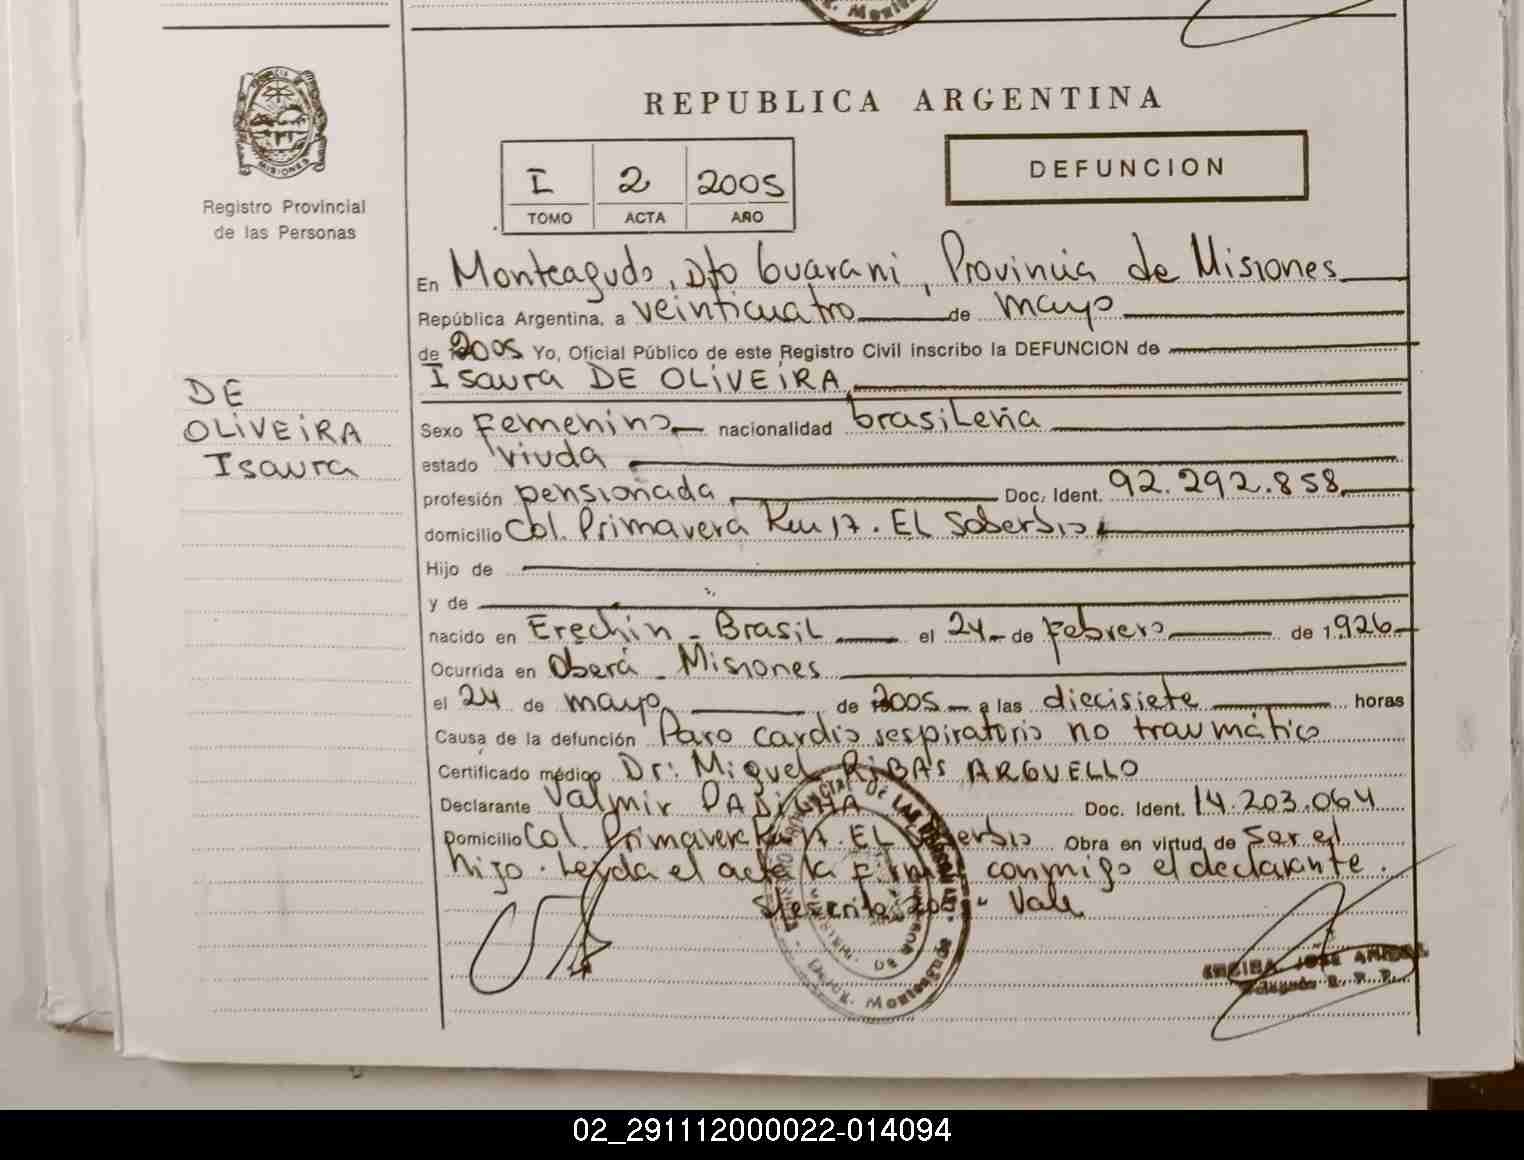 REPUBLICA ARGENTINA
PROVINCIA DE MISIONES
Registro Provincial
de las Personas
I 2 2005
TOMO ACTA AÑO
DEFUNCION
DE
OLIVEIRA
Isaura
En Monteagudo, Dto Guarani, Provincia de Misiones
República Argentina, a veinticuatro de mayo
de 2005 Yo, Oficial Público de este Registro Civil inscribo la DEFUNCION de
Isaura DE OLIVEIRA
Sexo Femenino nacionalidad brasileña
estado viuda
profesión pensionada Doc. Ident. 92.292.858
domicilio Col. Primavera Km 17. EL Soberbio
Hijo de
y de
nacido en Erechin - Brasil el 24 de Febrero de 1926
Ocurrida en Oberá - Misiones
el 24 de mayo de 2005 a las diecisiete horas
Causa de la defunción Paro cardio respiratorio no traumático
Certificado médico Dr: Miguel RIBAS ARGUELLO
Declarante Valmir PADILHA Doc. Ident. 14.203.064
Domicilio Col. Primavera Km 17. EL Soberbio Obra en virtud de Ser el
hijo. Leyda el acta la Firma conmigo el declarante.
S/escrito: 2005 - Vale
JOSE
Delegado R. P. P.
02_291112000022-014094